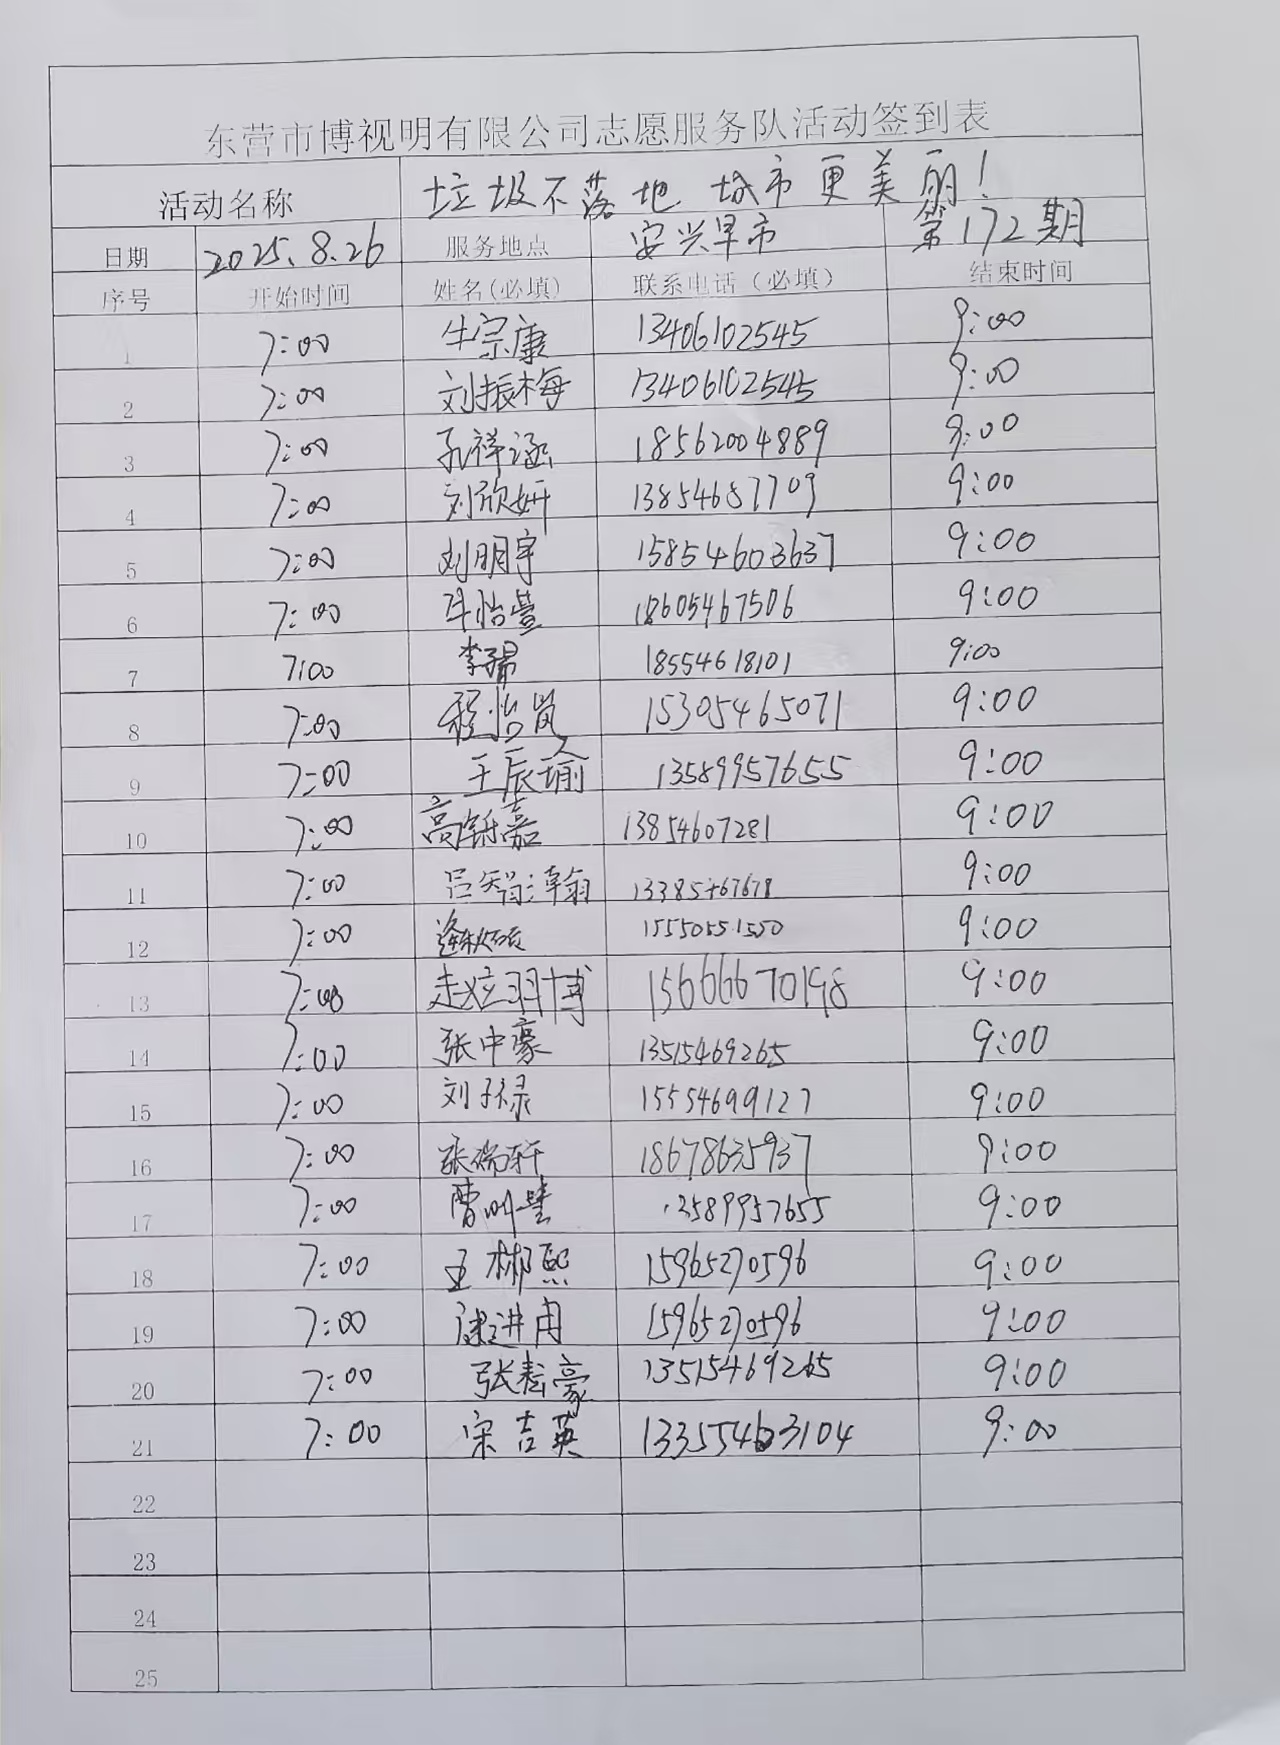 东营市博视明有限公司志愿服务队活动签到表
活动名称 垃圾不落地 城市更美丽！
日期 2025.8.26 服务地点 安兴早市 第172期
序号 开始时间 姓名(必填) 联系电话（必填） 结束时间
1 7:00 牛宗康 13406102545 9:00
2 7:00 刘振梅 13406102545 9:00
3 7:00 孔祥涵 18562004889 9:00
4 7:00 刘欣妍 13854687709 9:00
5 7:00 刘明宇 15854603637 9:00
6 7:00 怡萱 18605467506 9:00
7 7:00 李 18554618101 9:00
8 7:00 程怡岚 15305465071 9:00
9 7:00 王辰瑜 13589957655 9:00
10 7:00 高铄嘉 13854607281 9:00
11 7:00 吕智瀚 13385467678 9:00
12 7:00 15550551550 9:00
13 7:00 羽博 15666670198 9:00
14 7:00 张中豪 13515469265 9:00
15 7:00 刘子禄 15554699127 9:00
16 7:00 张瑞轩 18678635937 9:00
17 7:00 曹 13589957655 9:00
18 7:00 王彬熙 15965270596 9:00
19 7:00 进 15965270596 9:00
20 7:00 张耘豪 13515469265 9:00
21 7:00 宋吉英 13355463104 9:00
22
23
24
25